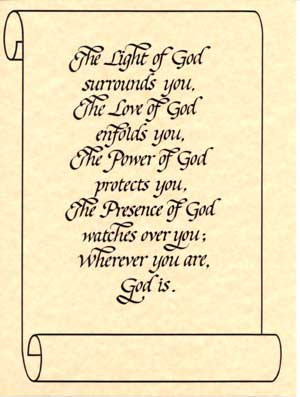 The Light of God
surrounds you,
The Love of God
enfolds you,
The Power of God
protects you,
The Presence of God
watches over you;
Wherever you are,
God is.